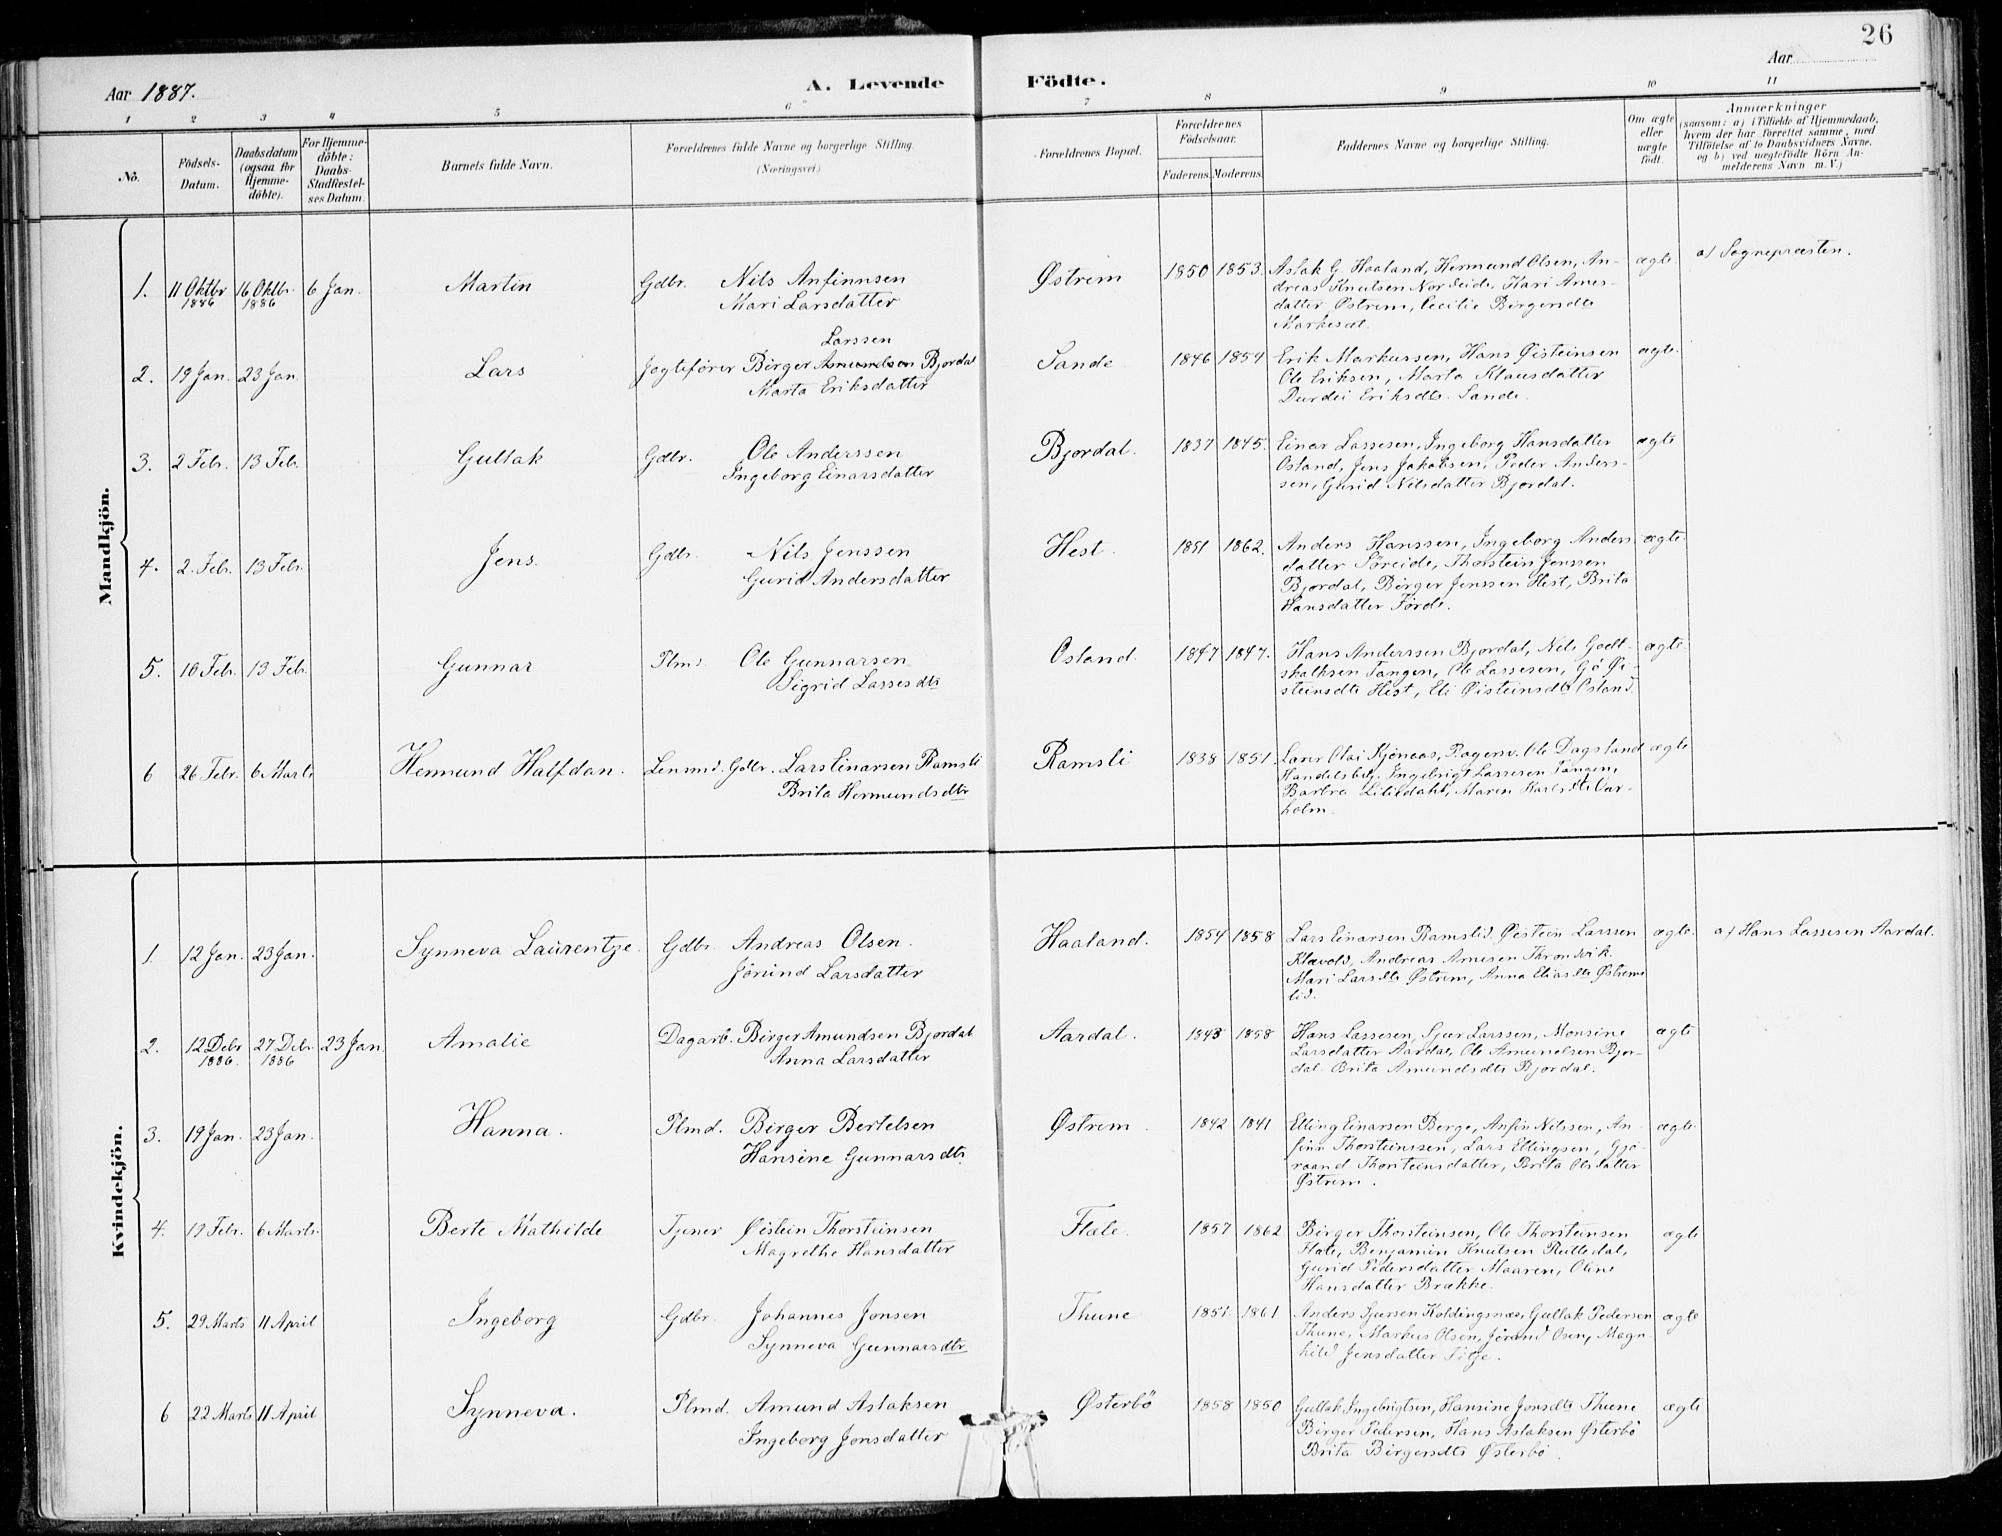 26
Aar 1887.
A. Levende Födte.
Aar
1 2 3 4 5 6 7 8 9 10 11
No.
Födsels-
Datum.
Daabsdatum
(ogsaa for
Hjemme-
döbte).
For Hjemme-
döbte:
Daabs-
Stadfæstel-
ses Datum.
Barnets fulde Navn.
Forældrenes fulde Navne og borgerlige Stilling.
(Næringsvei)
Forældrenes Bopæl.
Forældrenes
Födselsaar.
Faderens. Moderens.
Faddernes Navne og borgerlige Stilling.
Om ægte
eller
uægte
födt.
Anmærkninger
(saasom: a) i Tilfælde af Hjemmedaab,
hvem der har forrettet samme, med
Tilföielse af to Daabsvidners Navne,
og b) ved uægtefödte Börn An-
melderens Navn m. V.)
Mandkjön.
1. 11 Oktbr 1886 16 Oktbr. 1886 6 Jan. Martin Gdbr. Nils Anfinnsen
Mari Larsdatter
Østrem 1850 1853. Aslak G. Haaland, Hermund Olsen, An-
dreas Knutsen Nordeide, Kari Arnes-
datter Østrem, Cecilie Birgersdtr
ægte. a) Sognepræsten.
2. 19 Jan. 23 Jan. Lars Jagtefører Birger Larssen Bjordal
Marta Eriksdatter
Sande 1846 1854 Erik Markussen, Hans Øisteinsen
Ole Eriksen, Marta Klausdatter
Durdei Eriksdtr. Sande.
ægte.
3. 2 Febr. 13 Feb. Gullak Gdbr. Ole Anderssen
Ingeborg Einarsdatter
Bjordal. 1837 1845. Einar Lassesen, Ingeborg Hansdatter
Osland, Jens Jakobsen, Peder Anders-
sen, Gurid Nilsdatter Bjordal.
ægte
4. 2. Febr. 13 Febr. Jens. Gdbr. Nils Jenssen
Gurid Andersdatter
Hest. 1851 1862. Anders Hanssen, Ingeborg Anders
datter Søreide, Thorstein Jenssen
Bjordal, Birger Jenssen Hest, Brita
Hansdatter Førde.
ægte.
5. 10 Febr. 13 Febr. Gunnar Plmd. Ole Gunnarsen
Sigrid Lassesdtr
Osland. 1847 1847. Hans Anderssen Bjordal, Nils Godt-
skalksen Tangen, Ole Lassesen, Gjø Øi-
steinsdtr Hest, Eli Øisteinsdtr Osland.
ægte.
6 26 Febr. 6 Marts Hermund Halfdan. Lensmd. Gdbr. Lars Einarsen Ramsli
Brita Hermundsdtr
Ramsli 1838 1851. Lars Olai Kjønaas, Ole Dagsland
Ingebrigt Lassesen Tangen,
Barbra Lilledahl, Maren Karlsdtr Var-
holm.
ægte
Kvindekjön.
1. 12 Jan. 23 Jan. Synneva Laurentze. Gdbr. Andreas Olsen.
Jørund Larsdatter
Haaland. 1854 1858 Lars Einarsen Ramslid. Øistein Larssen
Klævold, Andreas Arnesen Throndvik.
Mari Larsdtr Østrem, Anna Eliasdtr Østrems
lid.
ægte. a) Hans Lassesen Aardal.
2. 12 Debr 1886. 27 Debr. 1886 23 Jan. Amalie Dagarb. Birger Amundsen Bjordal
Anna Larsdatter
Aardal. 1843 1858 Hans Lassesen, Sjur Larssen, Monsine
Larsdatter Aardal, Ole Amundsen Bjor-
dal. Brita Amundsdtr Bjordal.
ægte
3. 19 Jan. 23 Jan. Hanna. Plmd. Birger Bertelsen
Hansine Gunnarsdtr.
Østrem. 1842 1841 Elling Einarsen Berge, Anfin Nilssen, An-
finn Thorsteinssen, Lars Ellingsen, Gjø-
raand Thorsteinsdatter, Brita Olsdatter
Østrem.
ægte
4. 19 Febr. 6 Marts. Berte Mathilde Tjener Øistein Thorsteinsen
Magrethe Hansdatter
Flæte. 1857 1862 Birger Thorsteinsen, Ole Thorsteinsen
Flæte, Benjamin Knutsen Rutledal,
Gurid Pedersdatter Maaren, Oline
Hansdatter Brække.
ægte
5. 29 Marts 11 April Ingeborg Gdbr. Johannes Jonsen
Synneva Gunnarsdtr.
Thune 1851. 1861 Anders Sjursen Koldingsnæs, Gullak Pedersen
Thune, Markus Olsen, Jørand Osen, Magn-
hild Jensdatter Titje.
ægte
6 22 Marts 11 April Synneva. Plmd. Amund Aslaksen
Ingeborg Jonsdatter
Østerbö 1858 1850 Gullak Ingebrigtsen, Hansine Jonsdtr Thune
Birger Pedersen, Hans Aslaksen Østerbö
Brita Birgersdtr Østerbö.
ægte